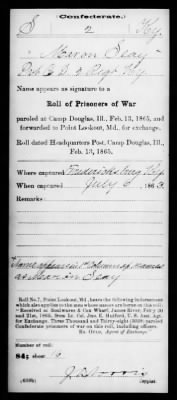 Confederate.
S 2 Ky.
Seay
Name appears as signature to a
Roll of Prisoners of War
paroled at Camp Douglas, Ill., Feb. 13, 1865, and
forwarded to Point Lookout, Md., for exchange.
Roll dated Headquarters Post, Camp Douglas, Ill.,
Feb. 13, 1865.
Where captured
When captured July 5, 1863.
Remarks:
as Seay
Roll No. 7, Point Lookout, Md., bears the following indorsement
which also applies to the men whose names are borne on this roll:
"Received at Boulwares & Cox Wharf, James River, Feb'y 20
and 21st, 1865, from Lt. Col. Jno. E. Mulford, U.S. Asst. Agt.
for Exchange, Three Thousand and Thirty-eight (3038) paroled
Confederate prisoners of war on this roll, including officers.
Ro. Ould, Agent of Exchange."
Number of roll:
sheet
Copyist.